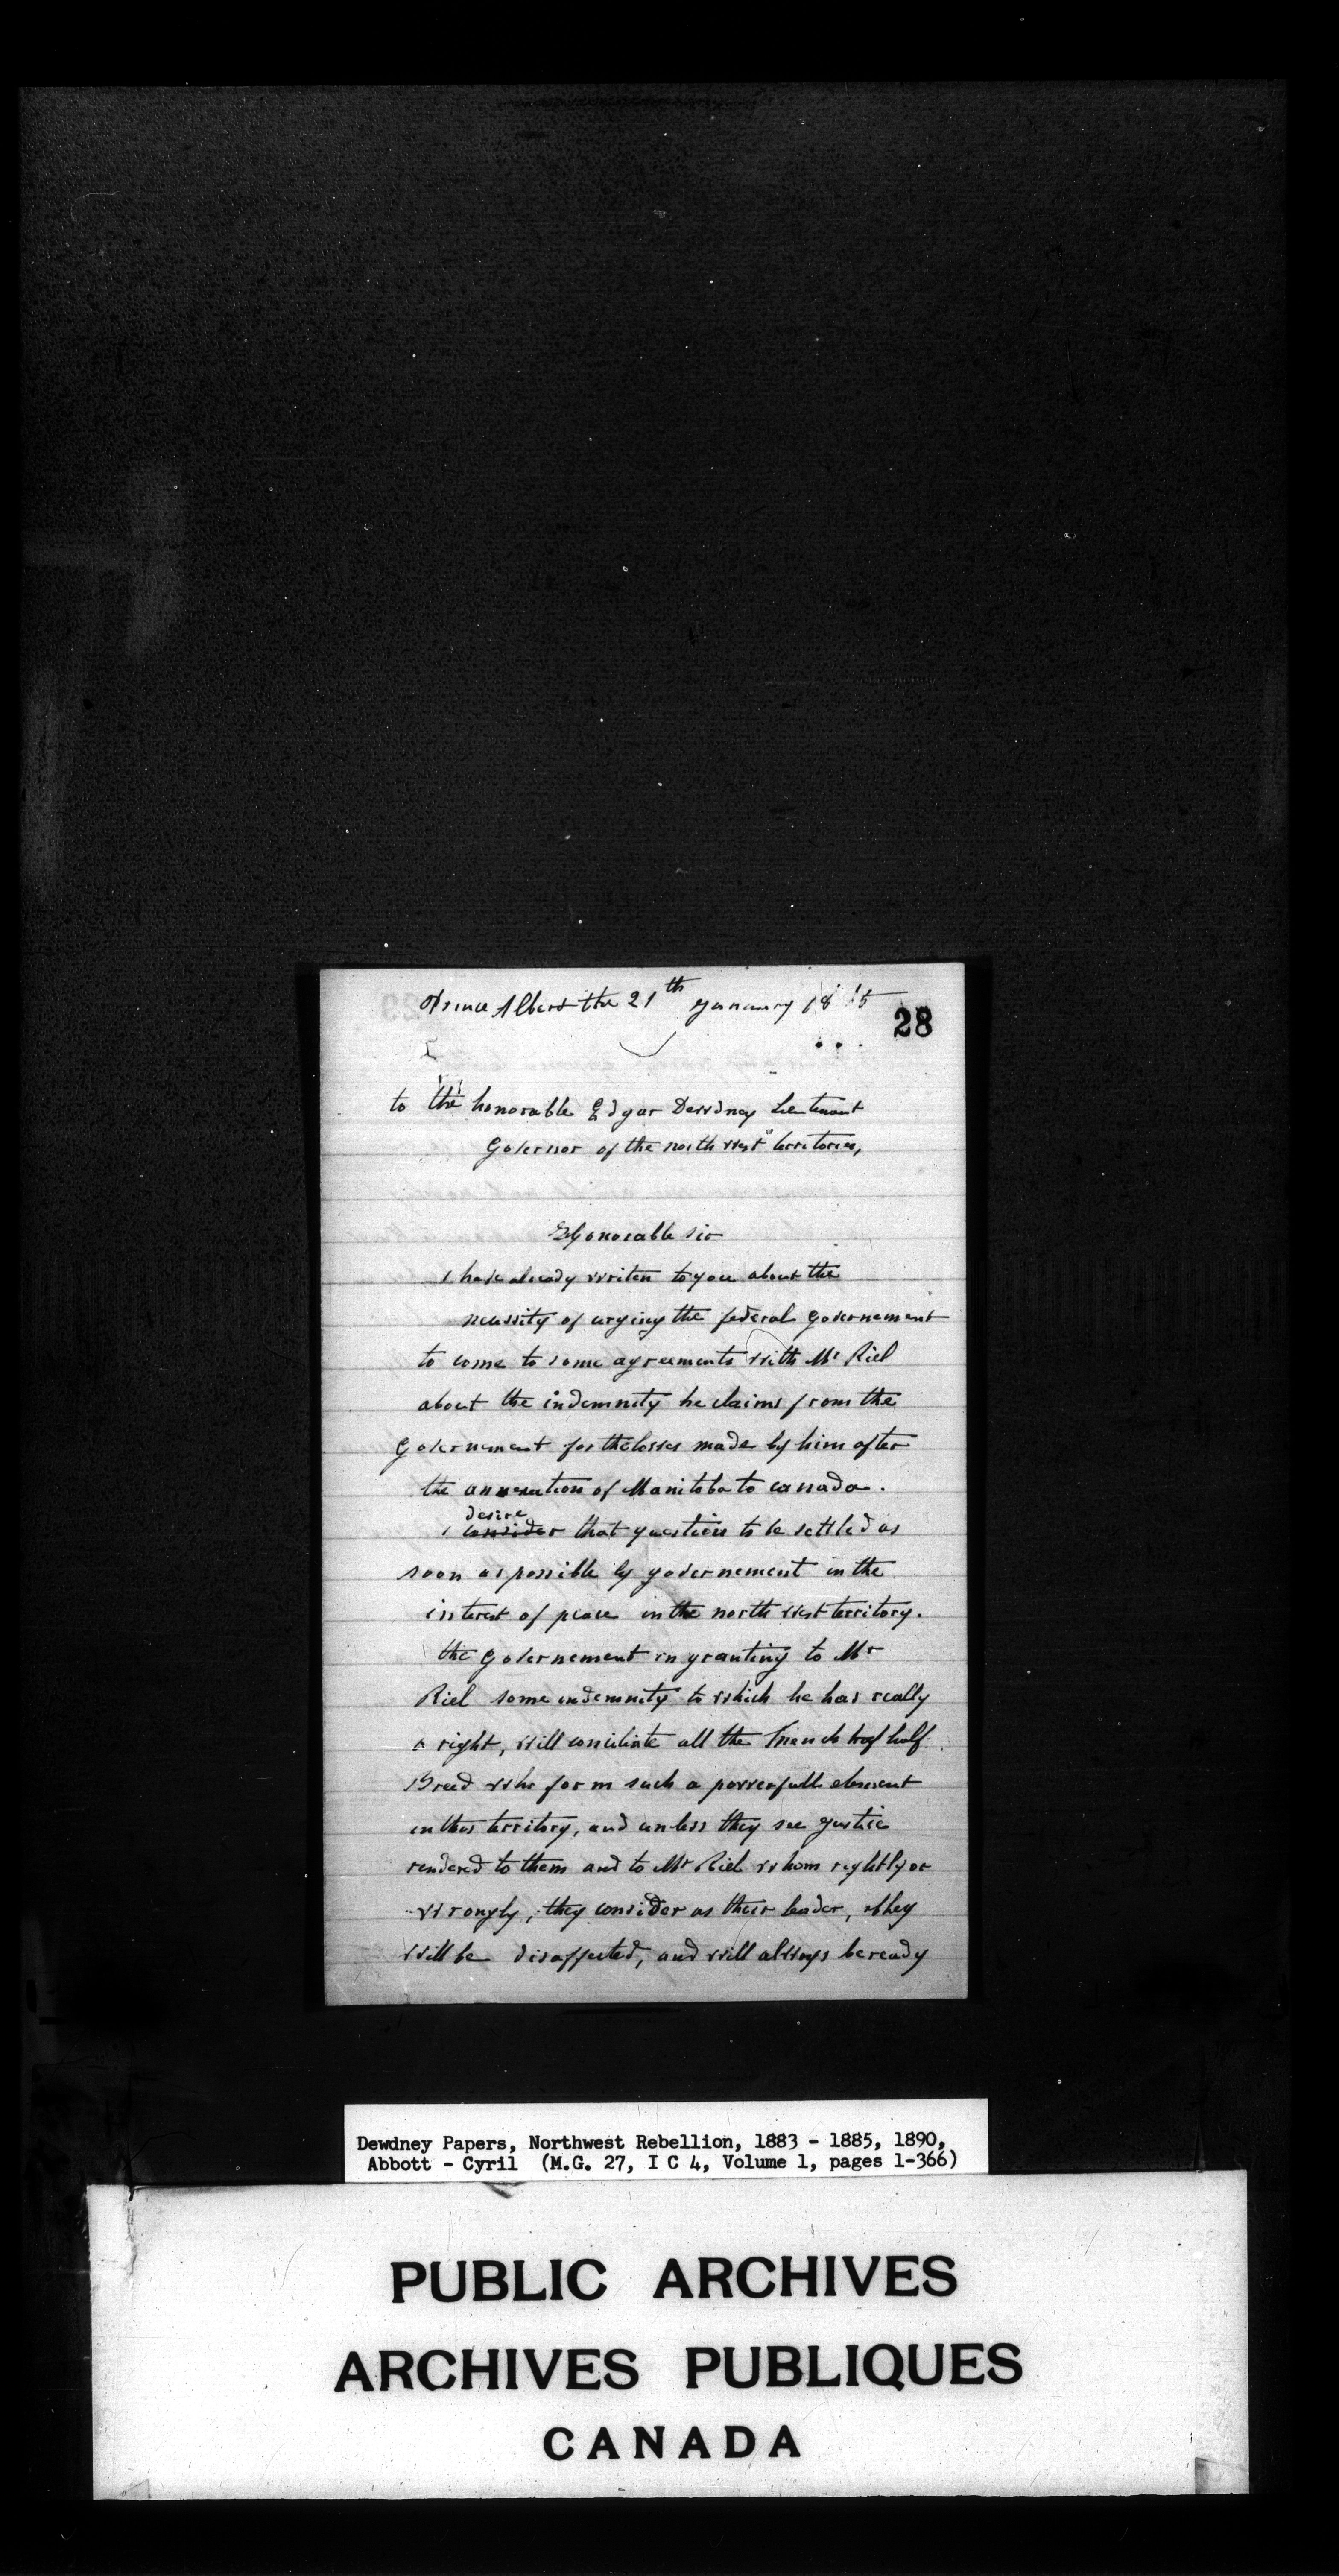 Prince Albert the 21th January 1885
28
to the honorable Edgar Dewdney Lieutenant
Governor of the north west territories,
Honorable sir
I have already writen to you about the
necessity of urging the federal governement
to come to some agreements with Mr Riel
about the indemnity he claims from the
Governement for the losses made by him after
the annexation of Manitoba to canada.
desire
I consider that question to be settled as
soon as possible by governement in the
interest of peace in the north west territory.
the Governement in granting to Mr
Riel some indemnity to which he has really
a right, will conciliate all the French half
Breed who form such a powerfull element
in this territory, and unless they see justice
rendered to them and to Mr Riel whom rightly or
wrongly, they consider as their leader, they
will be disaffected, and will always be ready
Dewdney Papers, Northwest Rebellion, 1883 - 1885, 1890,
Abbott - Cyril (M.G. 27, I C 4, Volume 1, pages 1-366)
PUBLIC ARCHIVES
ARCHIVES PUBLIQUES
CANADA